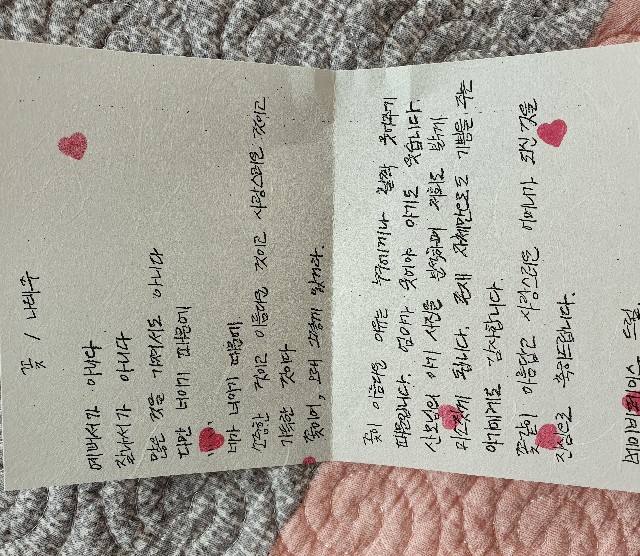 꽃 / 나태주
예뻐서가 아니다
잘나서가 아니다
많은 것을 가져서도 아니다
다만 너이기 때문에
네가 너이기 때문에
소중한 것이고 아름다운 것이고 사랑스러운 것이고
가득한 것이다
꽃이여, 오래 그렇게 있거라.
꽃이 아름다운 이유는 누구에게나 활짝 웃어주기
때문입니다. 엄마가 웃어야 아기도 웃습니다.
산모님의 아기 사진을 저희도 밝게
미소짓게 됩니다. 존재 자체만으로도 기쁨을 주는
아기에게도 감사합니다.
꽃같이 아름답고 사랑스러운 어머니가 되신 것을
진심으로 축하드립니다.
드림.